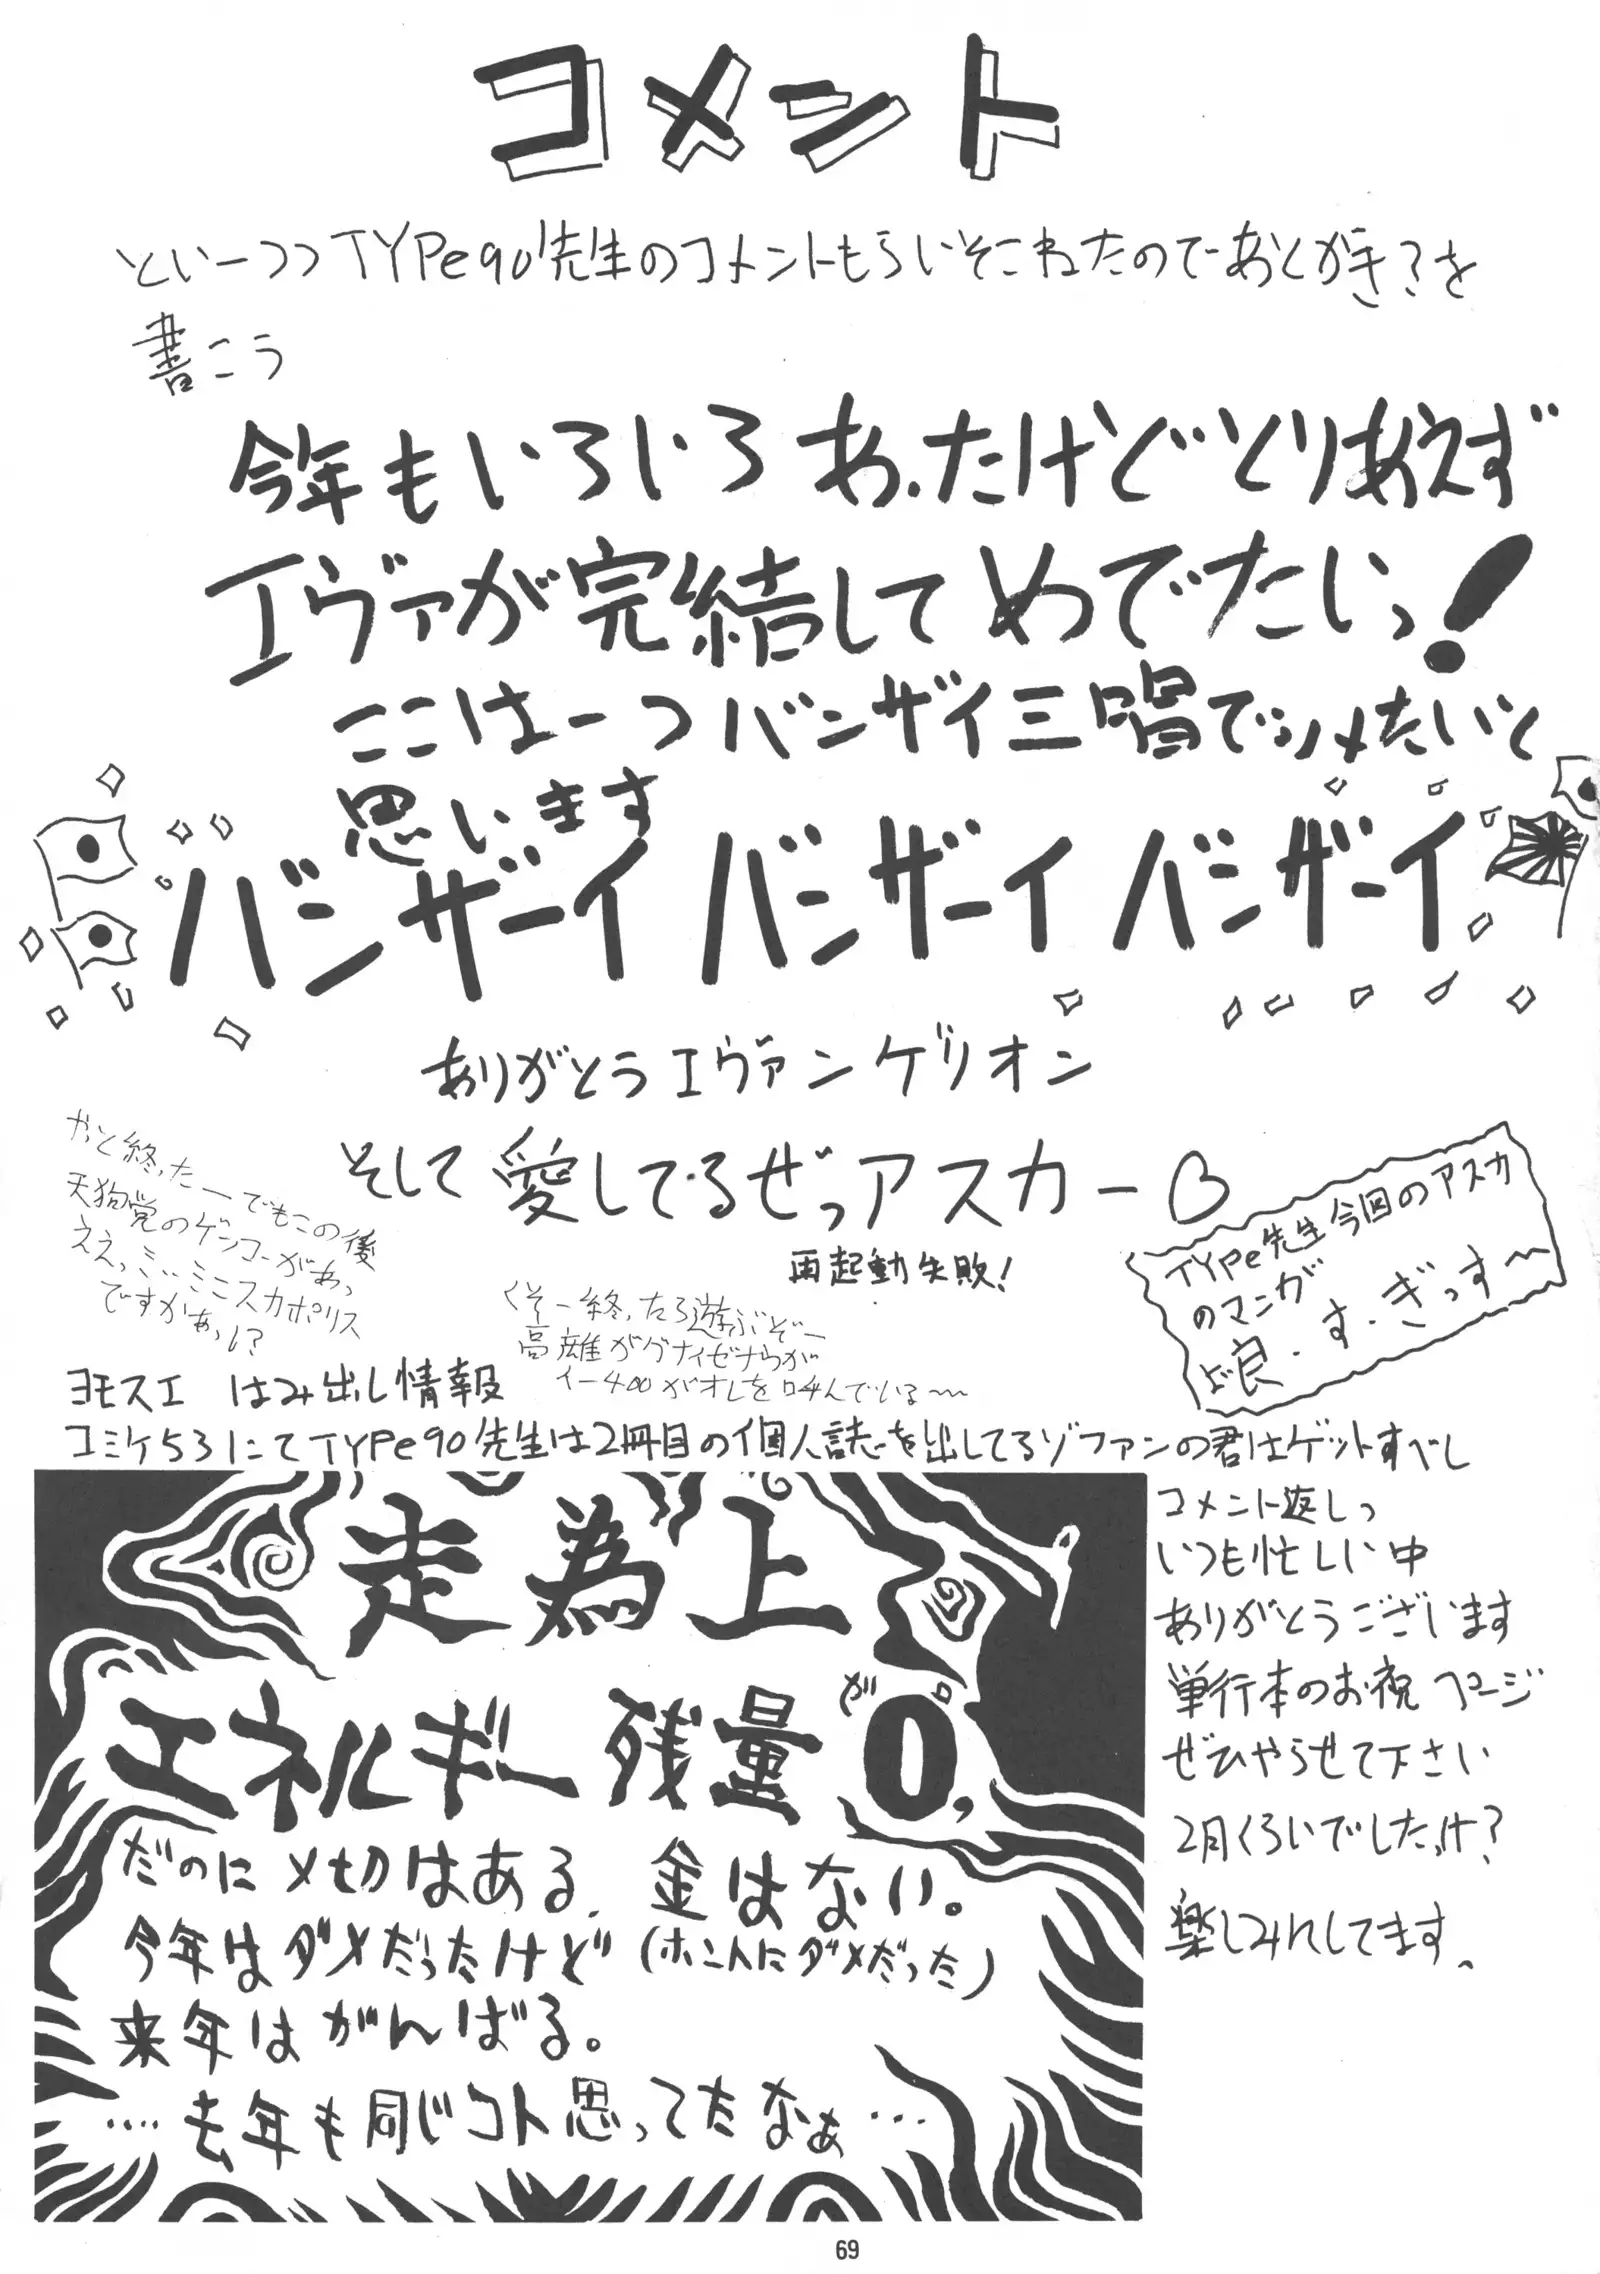 コメント
といーつつTYPe90先生のコメントもらいそこねたのでーあとがき？を
書こう
今年もいろいろあったけどとりあえず
エヴァが完結してめでたいっ！
ここは一つバンザイ三唱でシメたいと
思います
バンザーイ バンザーイ バンザーイ
ありがとうエヴァンゲリオン
そして愛してるぜっアスカー
再起動失敗！
やっと終ったーでもこの後
天狗党のゲンコーがあっ
ええっミニスカポリス
ですかぁっ！？
くそー終ったら遊ぶぞー
イー400がオレを呼んでいる〜
TYPe先生今回のアスカ
のマンガ
良すぎっす〜
ヨモスエ はみ出し情報
コミケ53にてTYPe90先生は2冊目の個人誌を出してるゾファンの君はゲットすべし
走為上
エネルギー残量が0。
だのに〆切はある。金はない。
今年はダメだったけど（ホントにダメだった）
来年はがんばる。
…去年も同じコト思ってたなぁ…
コメント返しっ
いつも忙しい中
ありがとうございます
単行本のお祝ページ
ぜひやらせて下さい
2月くらいでしたっけ？
楽しみにしてます。
69